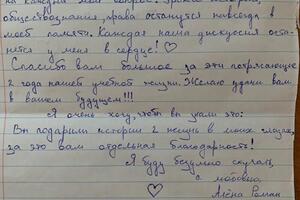 на каждый мой вопрос. Уроки истории,
обществознания, права останутся навсегда в
моей памяти. Каждая наша дискуссия оста-
нется у меня в сердце! ♡
Спасибо вам большое за эти потрясающие
2 года нашей учебной жизни. Желаю удачи вам
в вашем будущем!!!
Я очень хочу, чтобы вы знали это:
Вы подарили истории 2 жизнь в моих глазах,
за это вам отдельная благодарность!
Я буду безумно скучать,
с любовью
♡ Алёна Роман